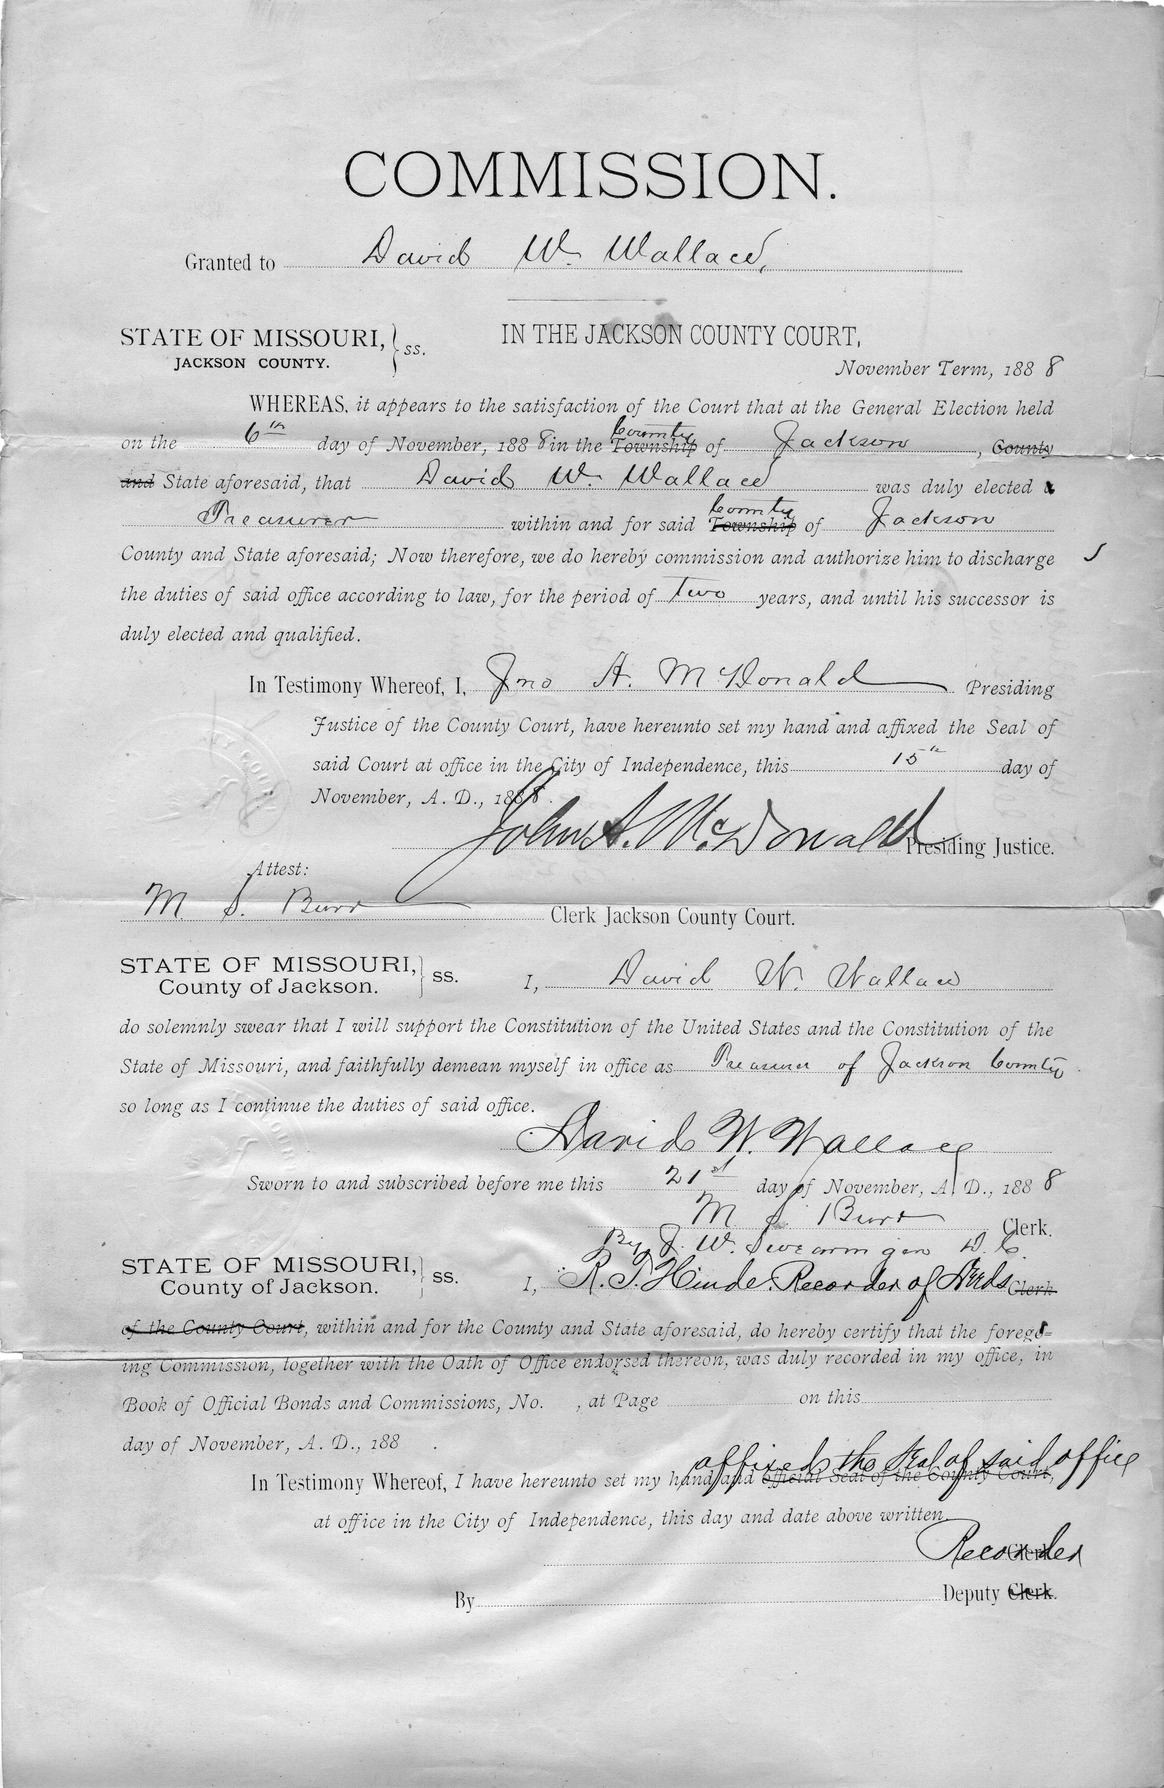 COMMISSION.
Granted to David W. Wallace,
STATE OF MISSOURI, JACKSON COUNTY. } ss.
IN THE JACKSON COUNTY COURT,
November Term, 1888
WHEREAS, it appears to the satisfaction of the Court that at the General Election held
on the 6th day of November, 1888 in the Township County of Jackson, County
and State aforesaid, that David W. Wallace was duly elected a
Treasurer within and for said Township County of Jackson
County and State aforesaid; Now therefore, we do hereby commission and authorize him to discharge
the duties of said office according to law, for the period of two years, and until his successor is
duly elected and qualified.
In Testimony Whereof, I, Jno A. McDonald Presiding
Justice of the County Court, have hereunto set my hand and affixed the Seal of
said Court at office in the City of Independence, this 15th day of
November, A. D., 1888.
John A. McDonald Presiding Justice.
Attest:
M. S. Burr Clerk Jackson County Court.
STATE OF MISSOURI, County of Jackson. } ss.
I, David W. Wallace
do solemnly swear that I will support the Constitution of the United States and the Constitution of the
State of Missouri, and faithfully demean myself in office as Treasurer of Jackson County
so long as I continue the duties of said office.
David W. Wallace
Sworn to and subscribed before me this 21st day of November, A. D., 1888
M. S. Burr Clerk.
By J. W. Swearingen D. C.
STATE OF MISSOURI, County of Jackson. } ss.
I, R. T. Hinde. Recorder of Deeds Clerk
of the County Court, within and for the County and State aforesaid, do hereby certify that the forego=
ing Commission, together with the Oath of Office endorsed thereon, was duly recorded in my office, in
Book of Official Bonds and Commissions, No. , at Page on this
day of November, A. D., 188 .
affixed the Seal of said office
In Testimony Whereof, I have hereunto set my hand and official Seal of the County Court,
at office in the City of Independence, this day and date above written.
Recorder Clerk
By Deputy Clerk.